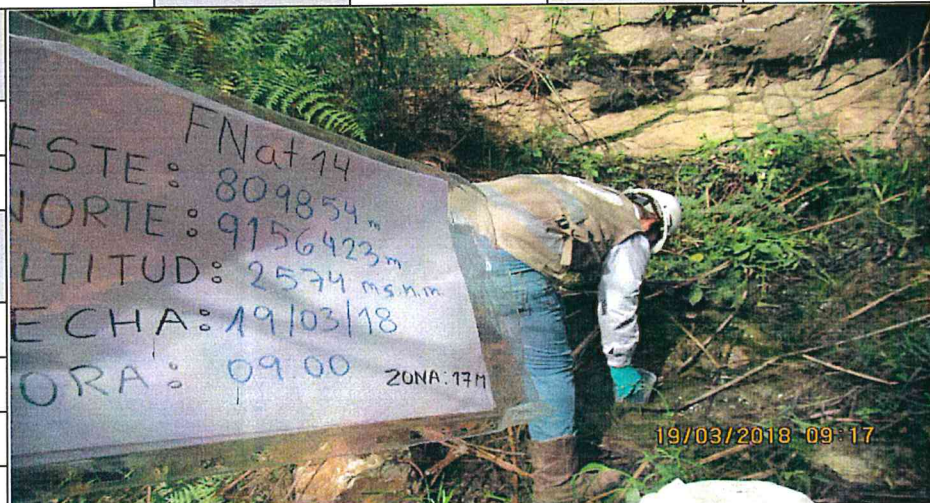 FNat 14
ESTE: 809854 m
NORTE: 9156423 m
LTITUD: 2574 m.s.n.m
ECHA: 19/03/18
ORA: 09 00
ZONA: 17M
19/03/2018 09:17